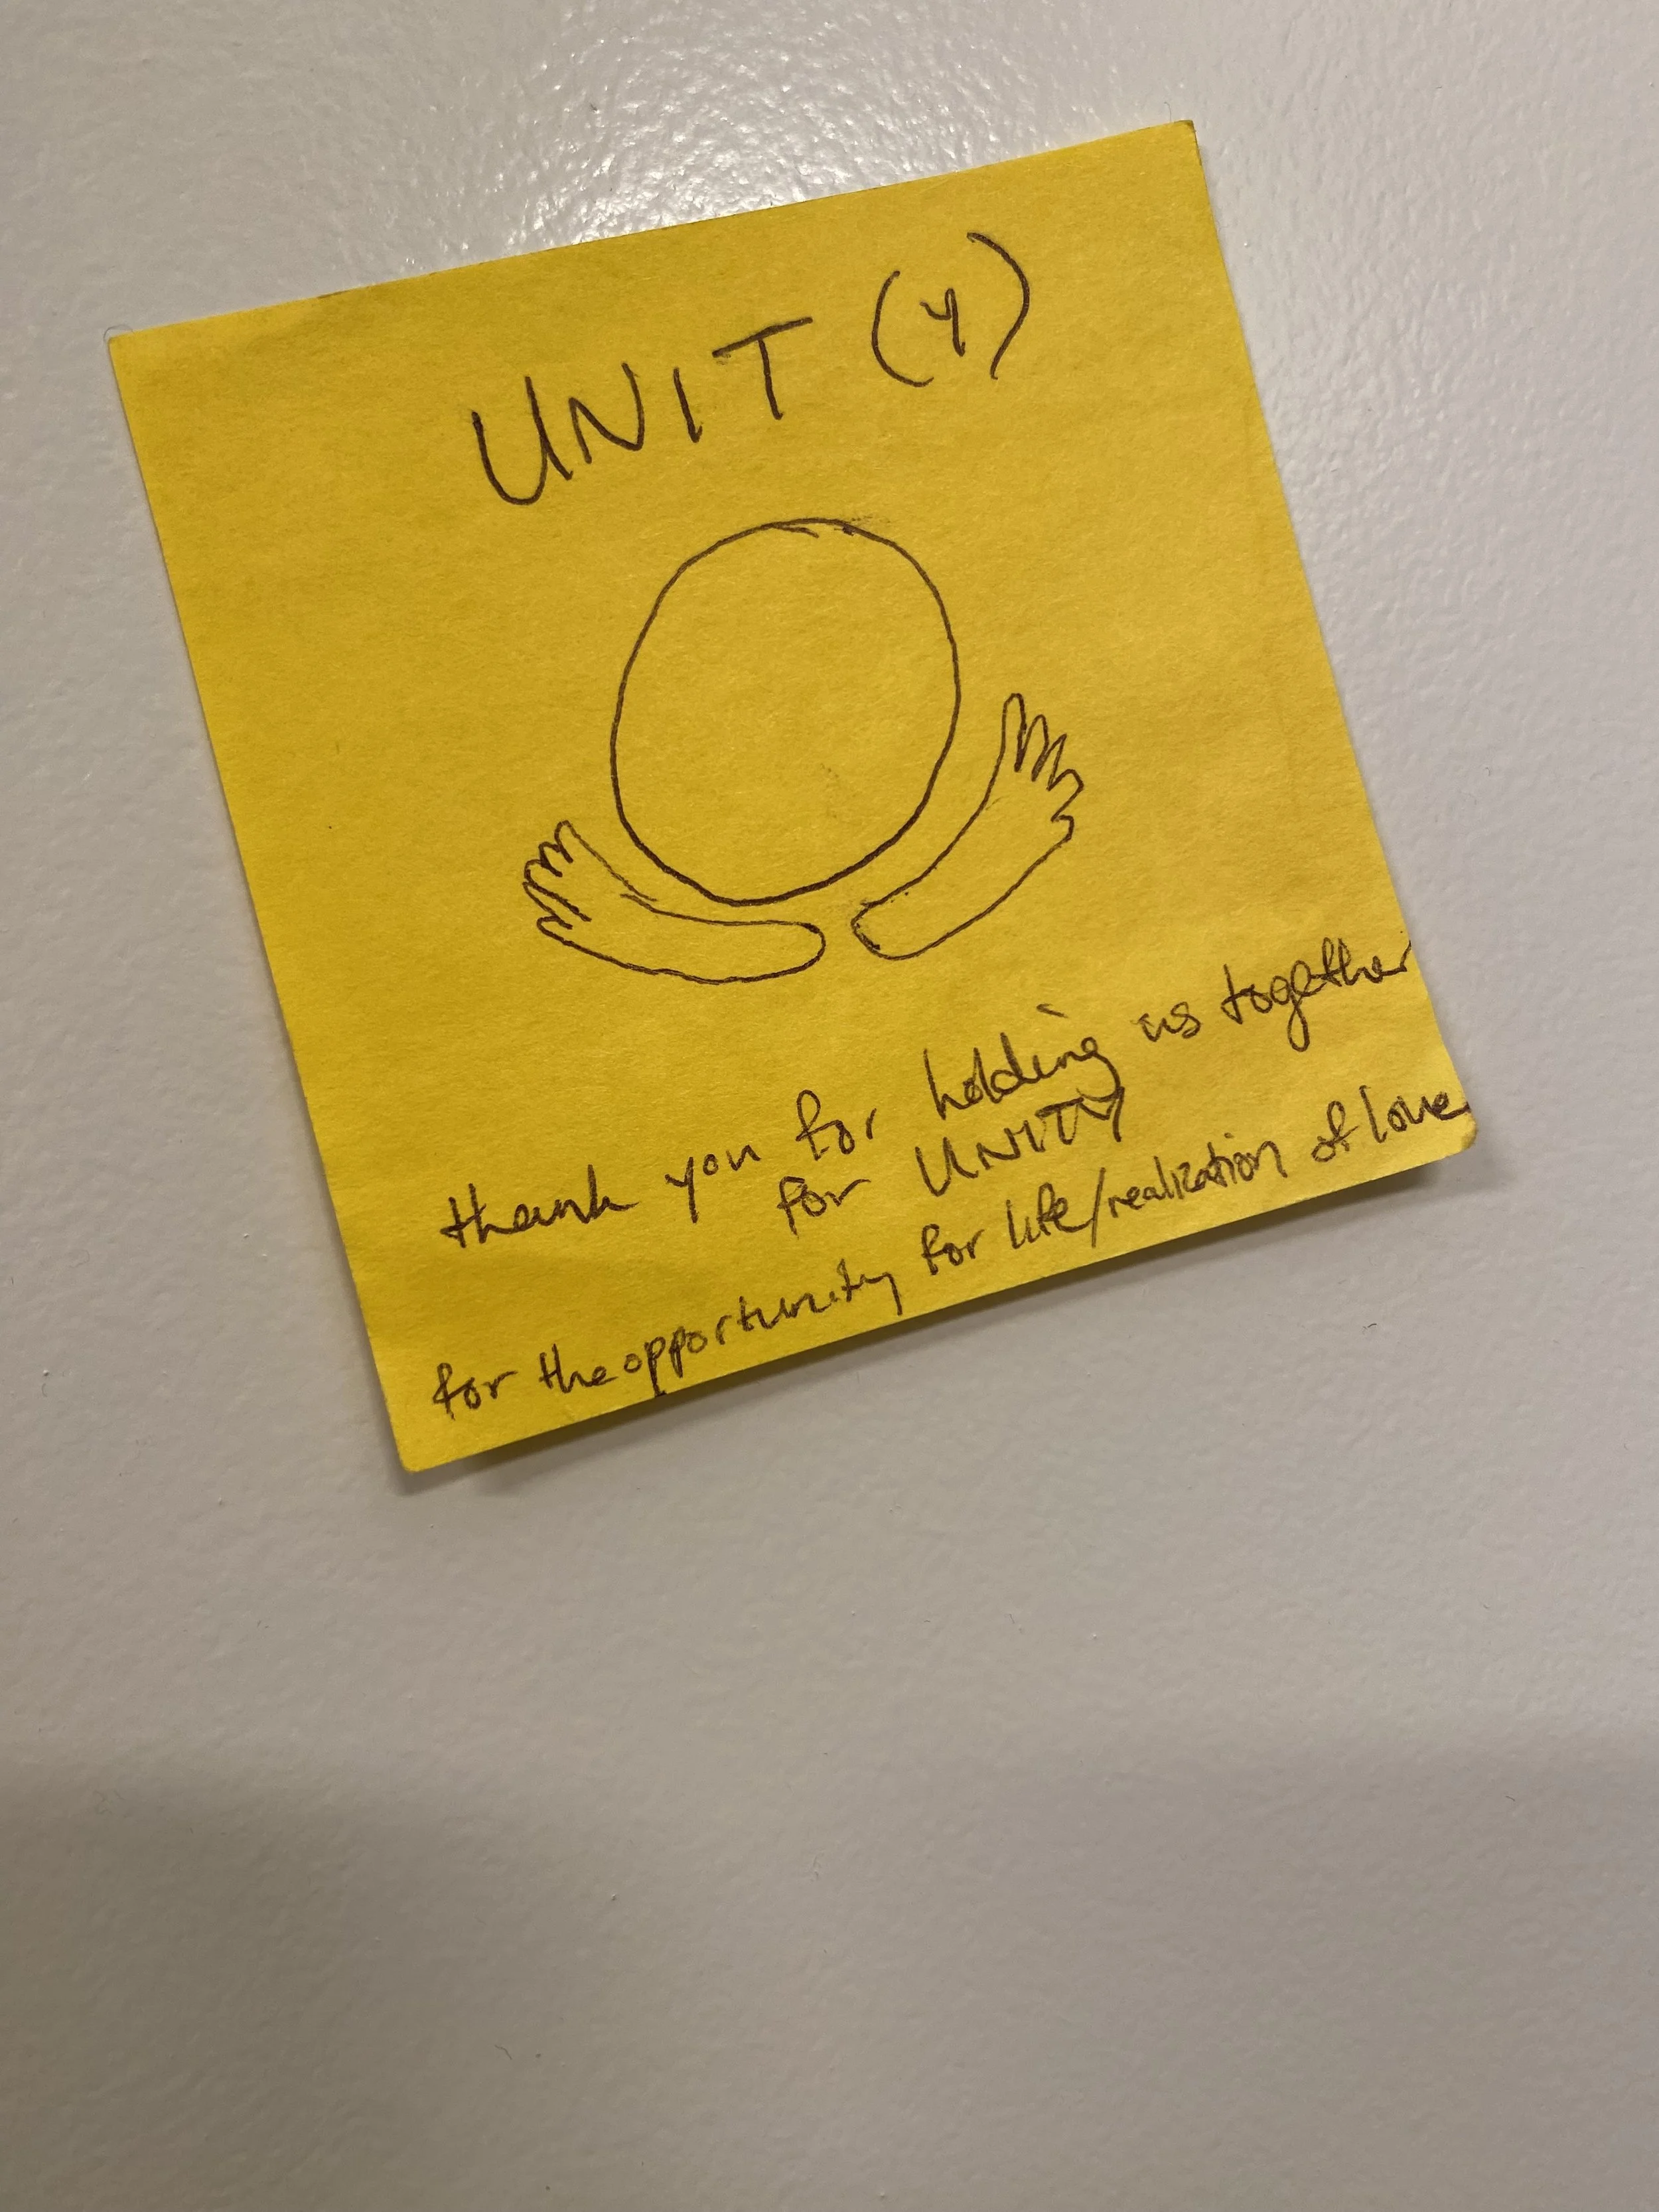 UNIT (Y)
thank you for holding us together
for UNITY
for the opportunity for life/realization of love